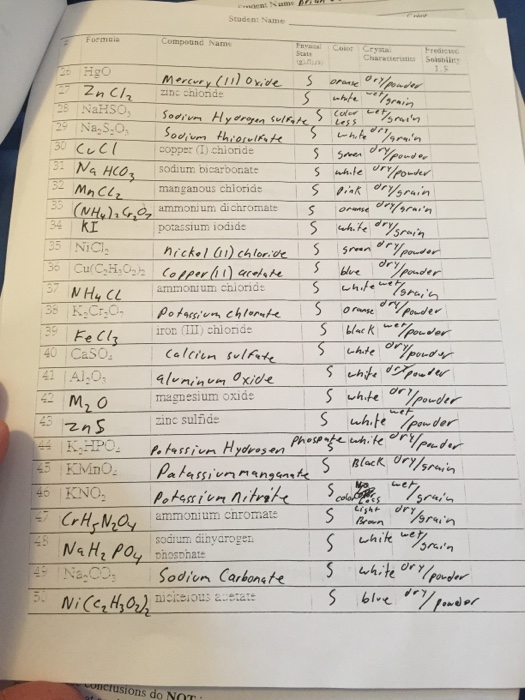 Student Name
Formula Compound Name Physical State Color Crystal Characteristics Predicted Solubility
26 HgO Mercury (11) Oxide S orange Dry/powder
27 ZnCl2 zinc chloride S white wet/grain
28 NaHSO4 Sodium Hydrogen sulfate S Color Less wet/grain
29 Na2S2O3 Sodium thiosulfate S white dry/grain
30 CuCl copper (I) chloride S green dry/powder
31 NaHCO3 sodium bicarbonate S white dry/powder
32 MnCl2 manganous chloride S Pink dry/grain
33 (NH4)2Cr2O7 ammonium dichromate S orange dry/grain
34 KI potassium iodide S white dry/grain
35 NiCl2 nickel (11) chloride S green dry/powder
36 Cu(C2H3O2)2 Copper (11) acetate S blue dry/powder
37 NH4CL ammonium chloride S white wet/grain
38 K2Cr2O7 Potassium chlorate S orange dry/powder
39 FeCl3 iron (III) chloride S black wet/powder
40 CaSO4 Calcium sulfate S white dry/powder
41 Al2O3 aluminum Oxide S white dry/powder
42 M2O magnesium oxide S white dry/powder
43 ZnS zinc sulfide S white wet/powder
44 K2HPO4 Potassium Hydrogen Phospate white dry/powder
45 KMnO4 Patassium manganate S Black dry/grain
46 KNO3 Potassium nitrate S color Less wet/grain
47 CrH5N2O4 ammonium chromate S Light Brown dry/grain
48 NaH2PO4 sodium dihydrogen phosphate S white wet/grain
49 Na2CO3 Sodium Carbonate S white dry/powder
50 Ni(C2H3O2)2 nickelous acetate S blue dry/powder
conclusions do NOT